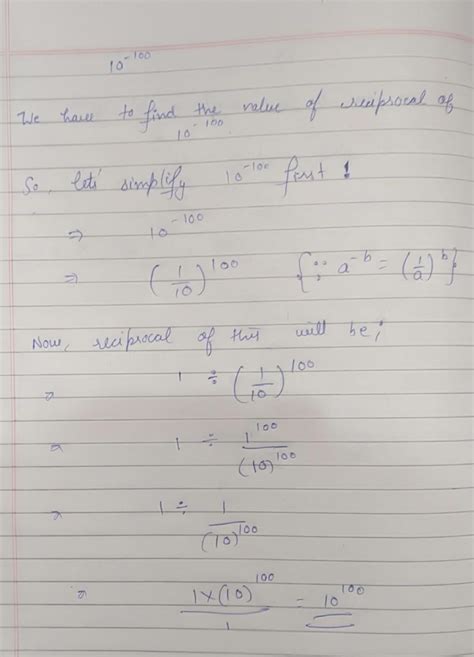 10⁻¹⁰⁰
We have to find the value of reciprocal of
10⁻¹⁰⁰.
So, lets' simplify 10⁻¹⁰⁰ first !
⇒ 10⁻¹⁰⁰
⇒ (1/10)¹⁰⁰ {∵ a⁻ᵇ = (1/a)ᵇ}
Now, reciprocal of this will be;
⇒ 1 ÷ (1/10)¹⁰⁰
⇒ 1 ÷ 1¹⁰⁰/(10)¹⁰⁰
⇒ 1 ÷ 1/(10)¹⁰⁰
⇒ 1×(10)¹⁰⁰/1 = 10¹⁰⁰